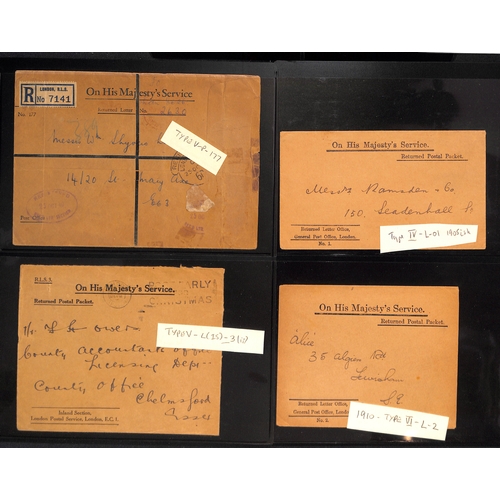 LONDON, R.L.S.
R No 7141
On His Majesty's Service
Returned Letter
No. 577
Messrs W.
TYPE V-R-177
14/20 St. Mary Axe
EC3
On His Majesty's Service.
Returned Postal Packet.
Messrs Ramsden & Co.
150. Leadenhall St.
Returned Letter Office,
General Post Office, London.
No. 1.
Type IV-L-01
R.L.S. 5.
On His Majesty's Service.
Returned Postal Packet.
EARLY
CHRISTMAS
County Accountants Office
Licensing Dept.
County Office
Chelmsford
Essex
TYPE V-L(IS)-3(a)
Island Section,
London Postal Service, London, E.C. 1.
On His Majesty's Service.
Returned Postal Packet.
Alice
35 Algiers Rd
Lewisham
S.E
Returned Letter Office,
General Post Office, London.
No. 2.
1910-TYPE VI-L-2